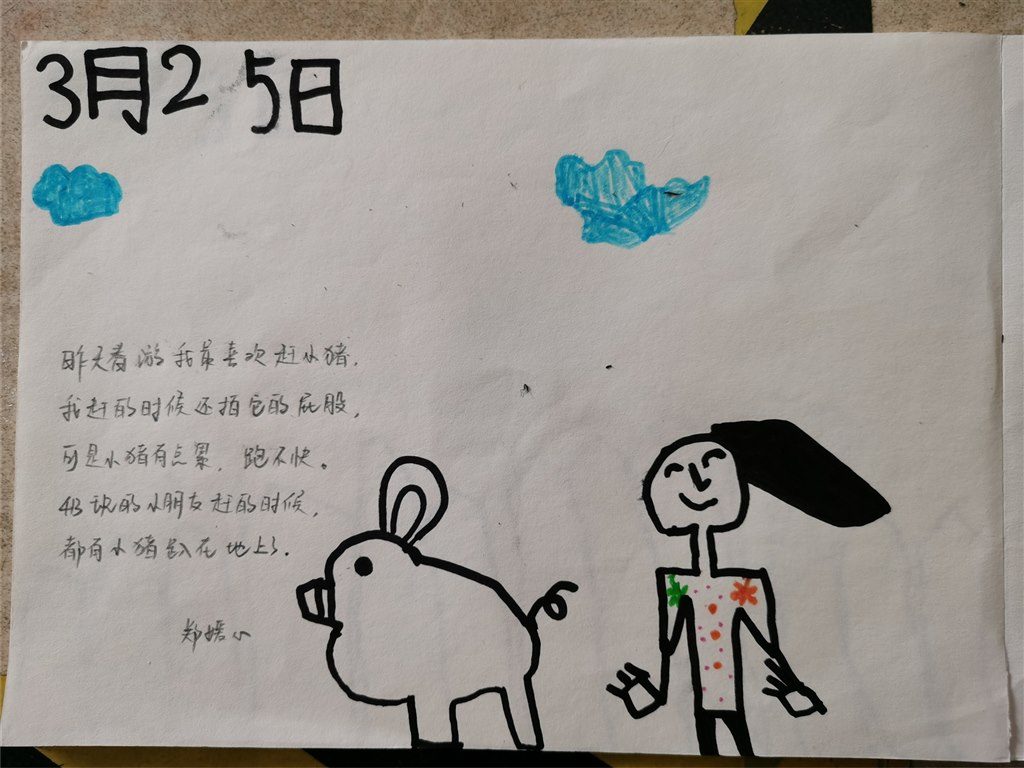 3月25日
昨天春游我最喜欢赶小猪,
我赶的时候还拍它的屁股,
可是小猪有点累,跑不快。
4B班的小朋友赶的时候,
都有小猪趴在地上了.
郑婼心